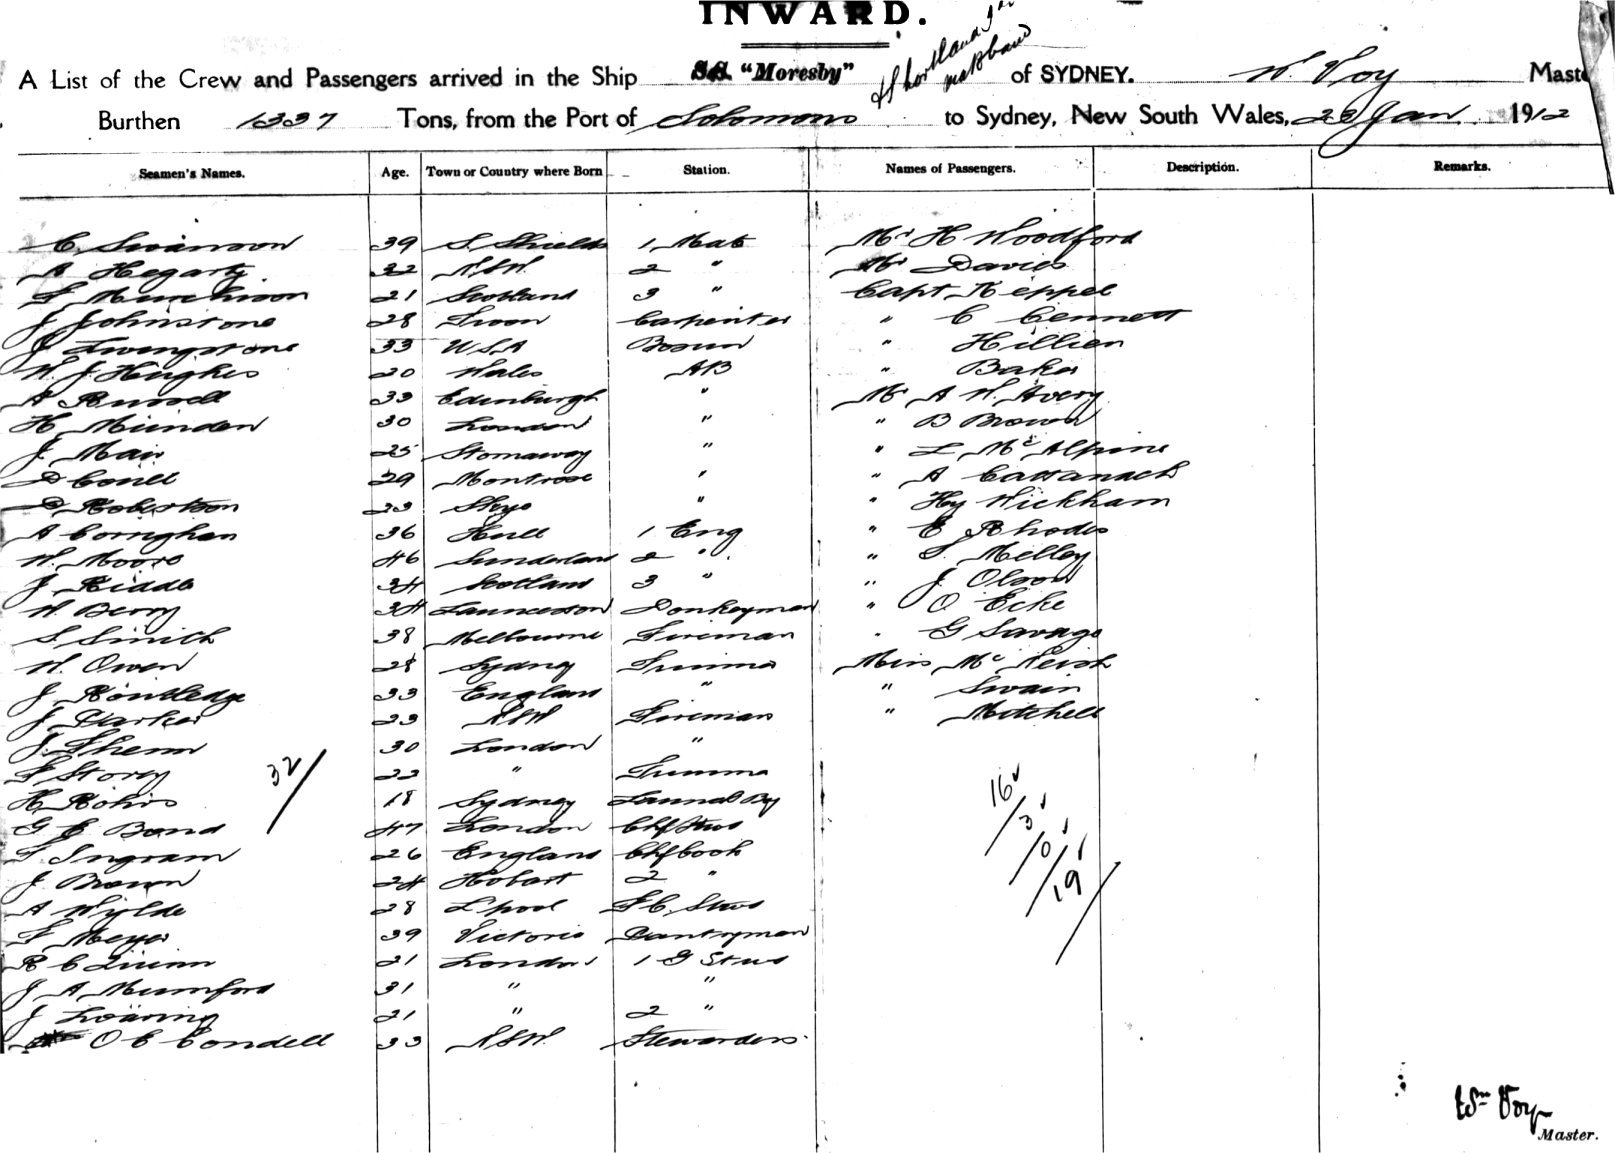 INWARD.
Shortland Is
A List of the Crew and Passengers arrived in the Ship S.S. "Moresby" of SYDNEY. W. Voy Maste
Burthen 1337 Tons, from the Port of Solomons to Sydney, New South Wales, 1912
Seamen's Names. Age. Town or Country where Born Station. Names of Passengers. Description. Remarks.
C. Swanson 39 S. Shields 1 Mate Mr H Woodford
A Hegarty 32 NSW 2 " Mr Davies
Murchison 21 Scotland 3 " Capt Keppel
J Johnstone 28 Troon Carpenter " C Cennett
J Livingstone 33 USA Bosun " Hillier
W. J. Hughes 20 Wales AB " Baker
A Russell 33 Edinburgh " Mr A W. Avery
H Munden 30 London " " B Brown
J Mair 25 Stornaway " " L McAlpine
D Coull 29 Montrose " " A Cattanach
D Robertson 23 Skye " " Hy Wickham
A Corrighan 36 Hull 1 Eng " E Rhodes
W. Moore 46 Sunderland 2 " " Melley
J Kidde 34 Scotland 3 " " J Olson
W Berry 34 Launceston Donkeyman " O Ecke
S Smith 38 Melbourne Fireman " G Savage
W. Owen 28 Sydney Trimmer Miss McNeish
J Routledge 33 England " " Swain
J Parker 23 NSW Fireman " Mitchell
J. Shenn 30 London "
F Storey 22 " Trimmer
32
H Rohrs 18 Sydney Lamp Boy
16
3
0
19
G E Bond 47 London Chf Stwd
T. Ingram 26 England Chf Cook
J Brown 24 Hobart 2 "
A Wylde 28 L'pool F.C. Stwd
F Meyer 39 Victoria Pantryman
R C Quinn 21 London 1 G Stwd
J A Mumford 31 " "
J Loaring 21 " 2 "
O C Condell 33 NSW. Stewardess
Wm Voy
Master.